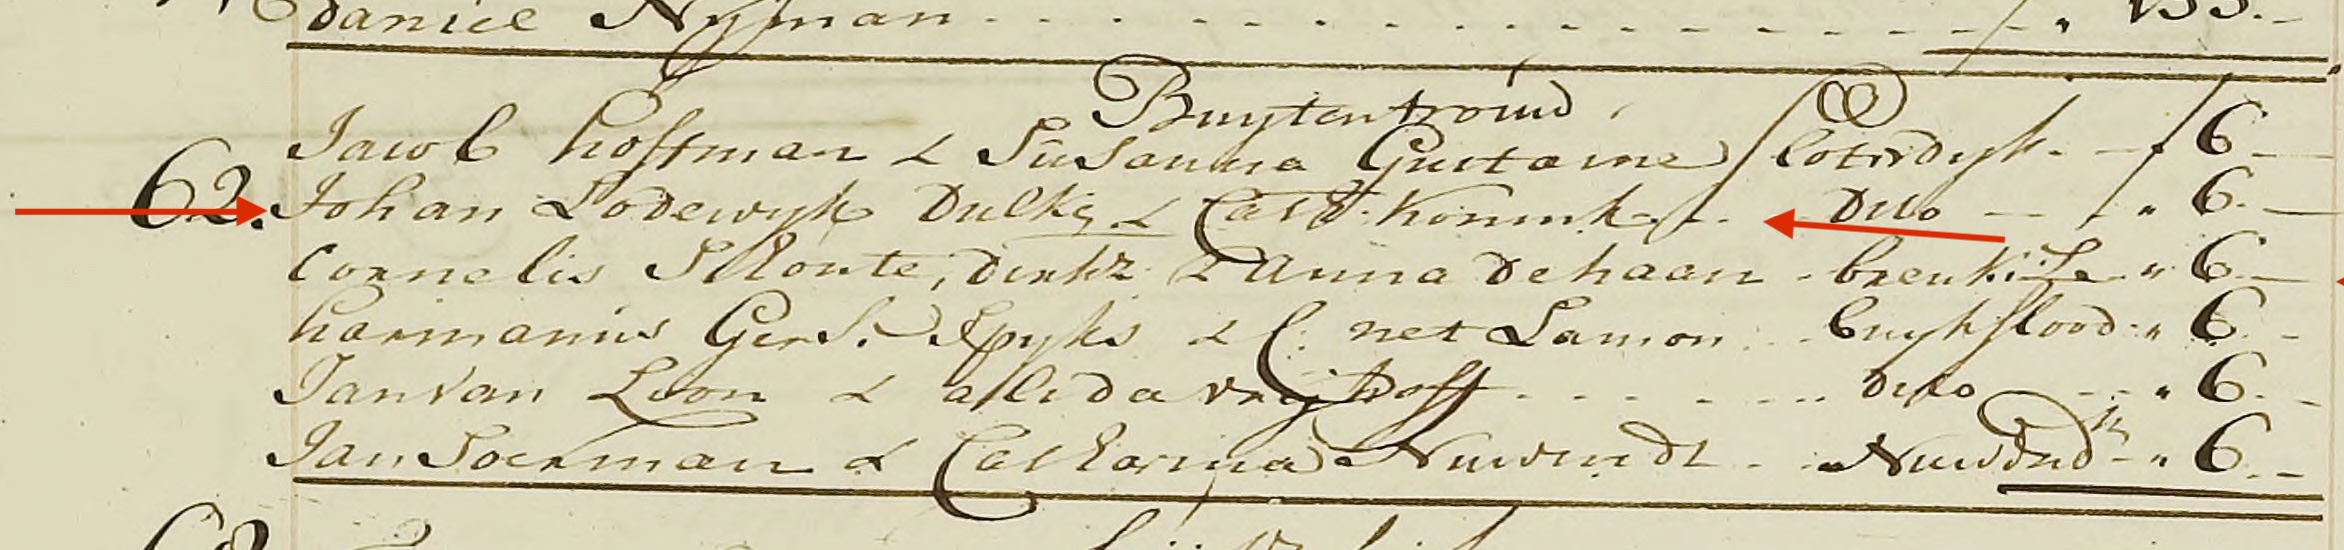 daniel Nijman - - - - - " 133.-
Buytentroud
Jacob hoffman & Susanna Gustavine Sloterdyk. - " 6 -
62. Johan Lodewyk Dulkij & Cath: Konink - - Ditto - " 6. -
Cornelis Kloute, Dirksz & Anna De haan - breukile " 6 -
harmanus Ger.s. Spyks & C. net Lamon .. buykslood " 6 -
Jan van Loon & allida vrijhoff - - - - - Ditto - " 6. -
Jan Soerman & Catharina Nuwendt - Nuwend - " 6. -